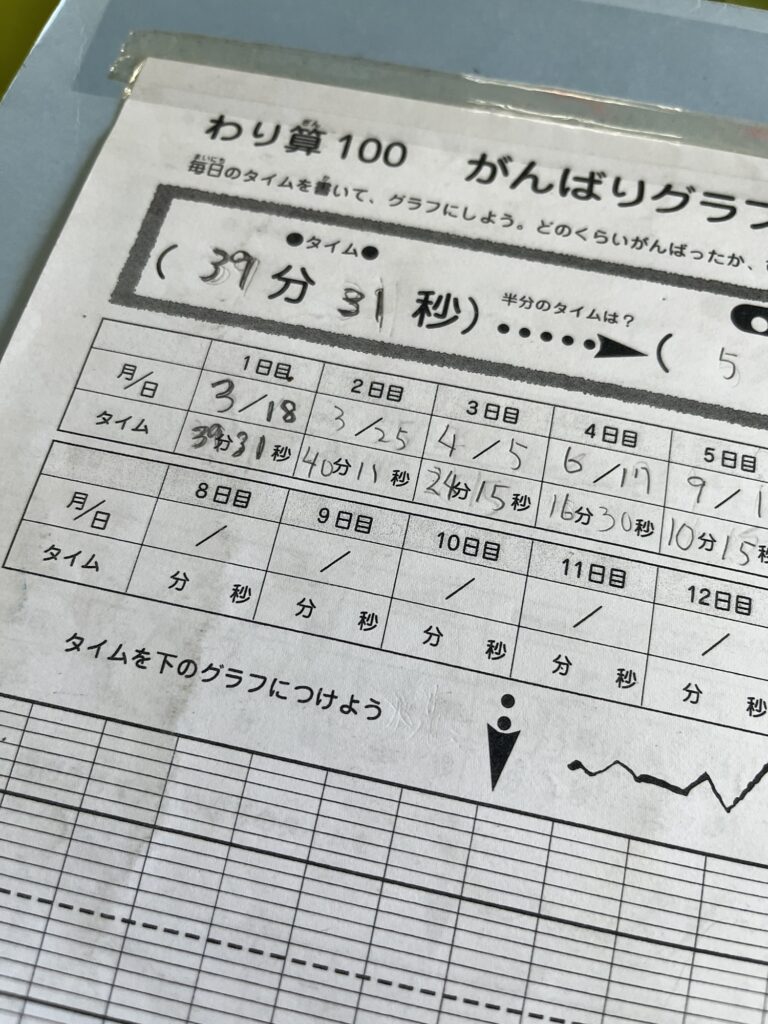 わり算100 がんばりグラフ
毎日のタイムを書いて、グラフにしよう。どのくらいがんばったか、
●タイム●
( 39分 31秒) 半分のタイムは? ( 5
1日目 2日目 3日目 4日目 5日目
月/日 3/18 3/25 4/5 6/17 9/1
タイム 39分31秒 40分11秒 24分15秒 16分30秒 10分15秒
8日目 9日目 10日目 11日目 12日目
月/日 / / / / /
タイム 分 秒 分 秒 分 秒 分 秒 分 秒
タイムを下のグラフにつけよう